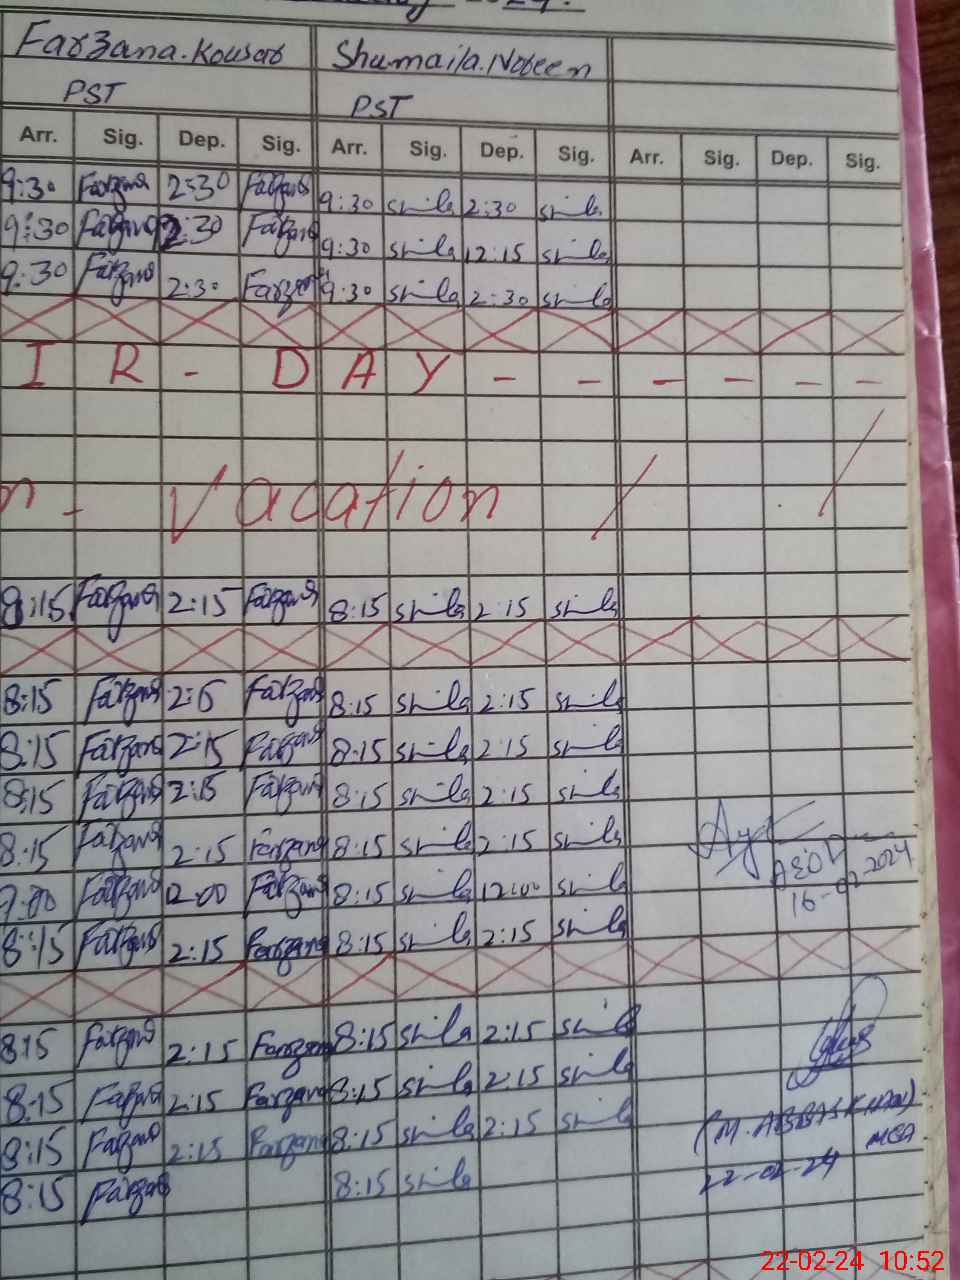 2024.
Farzana.Kousar Shumaila.Nobeen
PST PST
Arr. Sig. Dep. Sig. Arr. Sig. Dep. Sig. Arr. Sig. Dep. Sig.
9:30 Farzana 2:30 Farzana 9:30 smila 2:30 smila
9:30 Farzana 2:30 Farzana 9:30 smila 12:15 smila
9:30 Farzana 2:30 Farzana 9:30 smila 2:30 smila
I R - D A Y - - - - - -
n - Vacation / /
8:15 Farzana 2:15 Farzana 8:15 smila 2:15 smila
8:15 Farzana 2:15 Farzana 8:15 smila 2:15 smila
8:15 Farzana 2:15 Farzana 8:15 smila 2:15 smila
8:15 Farzana 2:15 Farzana 8:15 smila 2:15 smila
8:15 Farzana 2:15 Farzana 8:15 smila 2:15 smila
Farzana Farzana 8:15 smila 12:00 smila
16-02-2024
8:15 Farzana 2:15 Farzana 8:15 smila 2:15 smila
8:15 Farzana 2:15 Farzana 8:15 smila 2:15 smila
8:15 Farzana 2:15 Farzana 8:15 smila 2:15 smila
8:15 Farzana 2:15 Farzana 8:15 smila 2:15 smila
(M. ABBAS KHAN)
MEA
8:15 Farzana 8:15 smila
22-02-24
22-02-24 10:52